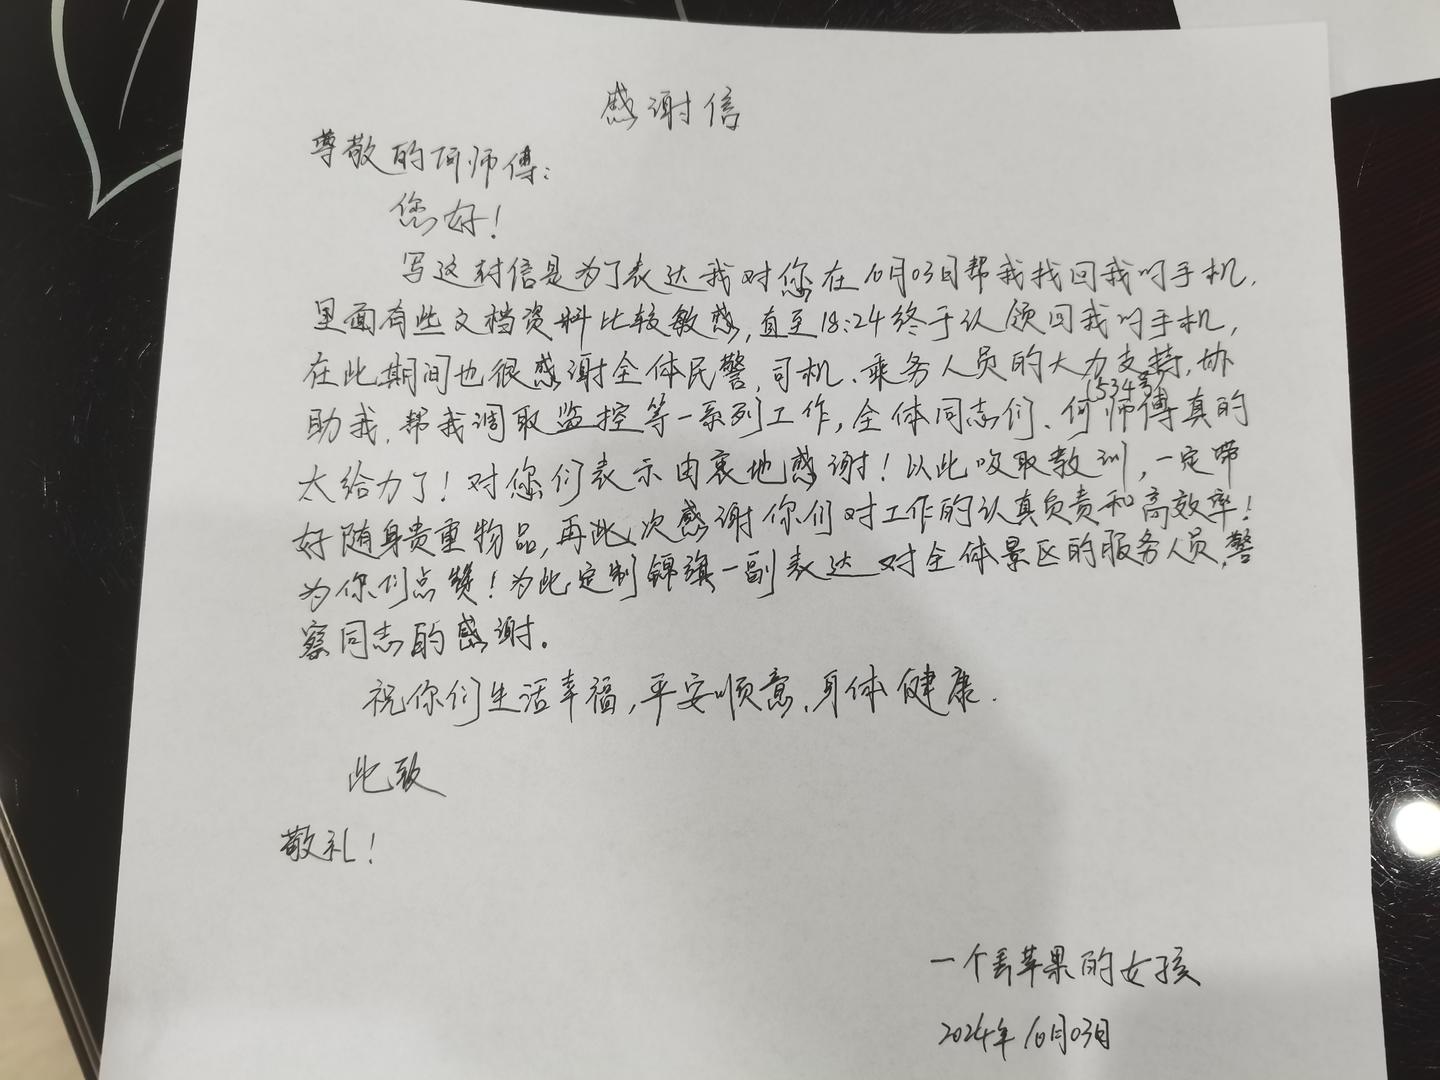 感谢信
尊敬的何师傅：
您好！
写这封信是为了表达我对您在10月03日帮我找回我的手机.
里面有些文档资料比较敏感,直至18:24终于认领回我的手机,
在此期间也很感谢全体民警、司机、乘务人员的大力支持,协
1534号
助我,帮我调取监控等一系列工作,全体同志们、何师傅真的
太给力了！对您们表示由衷地感谢！以此吸取教训,一定带
好随身贵重物品,再此次感谢你们对工作的认真负责和高效率！
为你们点赞！为此定制锦旗一副表达对全体景区的服务人员、警
察同志的感谢。
祝你们生活幸福,平安顺意,身体健康.
此致
敬礼！
一个丢苹果的女孩
2024年10月03日